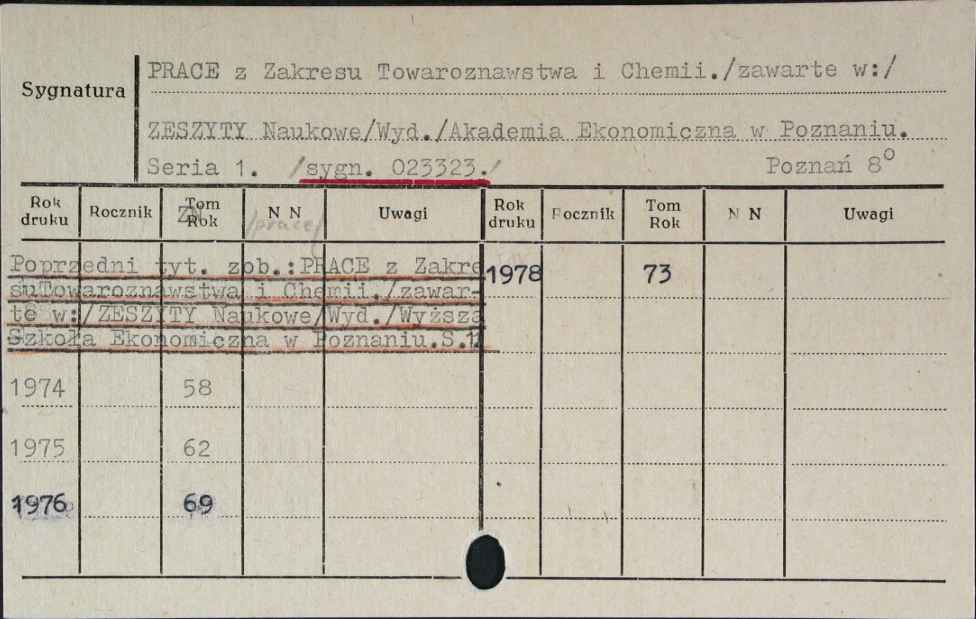 Sygnatura
PRACE z Zakresu Towaroznawstwa i Chemii./zawarte w:/
ZESZYTY Naukowe/Wyd./Akademia Ekonomiczna w Poznaniu.
Seria 1. /sygn. 023323./ Poznań 8°
Rok druku Rocznik Tom Rok N N Uwagi Rok druku Rocznik Tom Rok N N Uwagi
ZN /prace/
Poprzedni tyt. zob.:PRACE z Zakre
suTowaroznawstwa i Chemii./zawar-
te w:/ZESZYTY Naukowe/Wyd./Wyższa
Szkoła Ekonomiczna w Poznaniu.S.1/
1978 73
1974 58
1975 62
1976 69